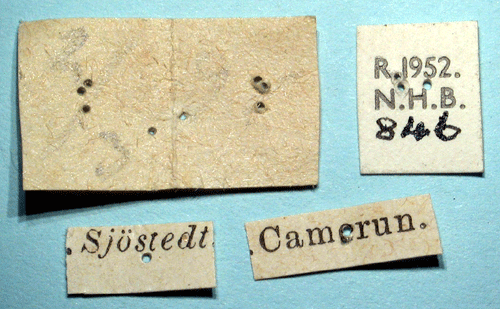 R.1952.
N.H.B.
846
Sjöstedt.
Camerun.